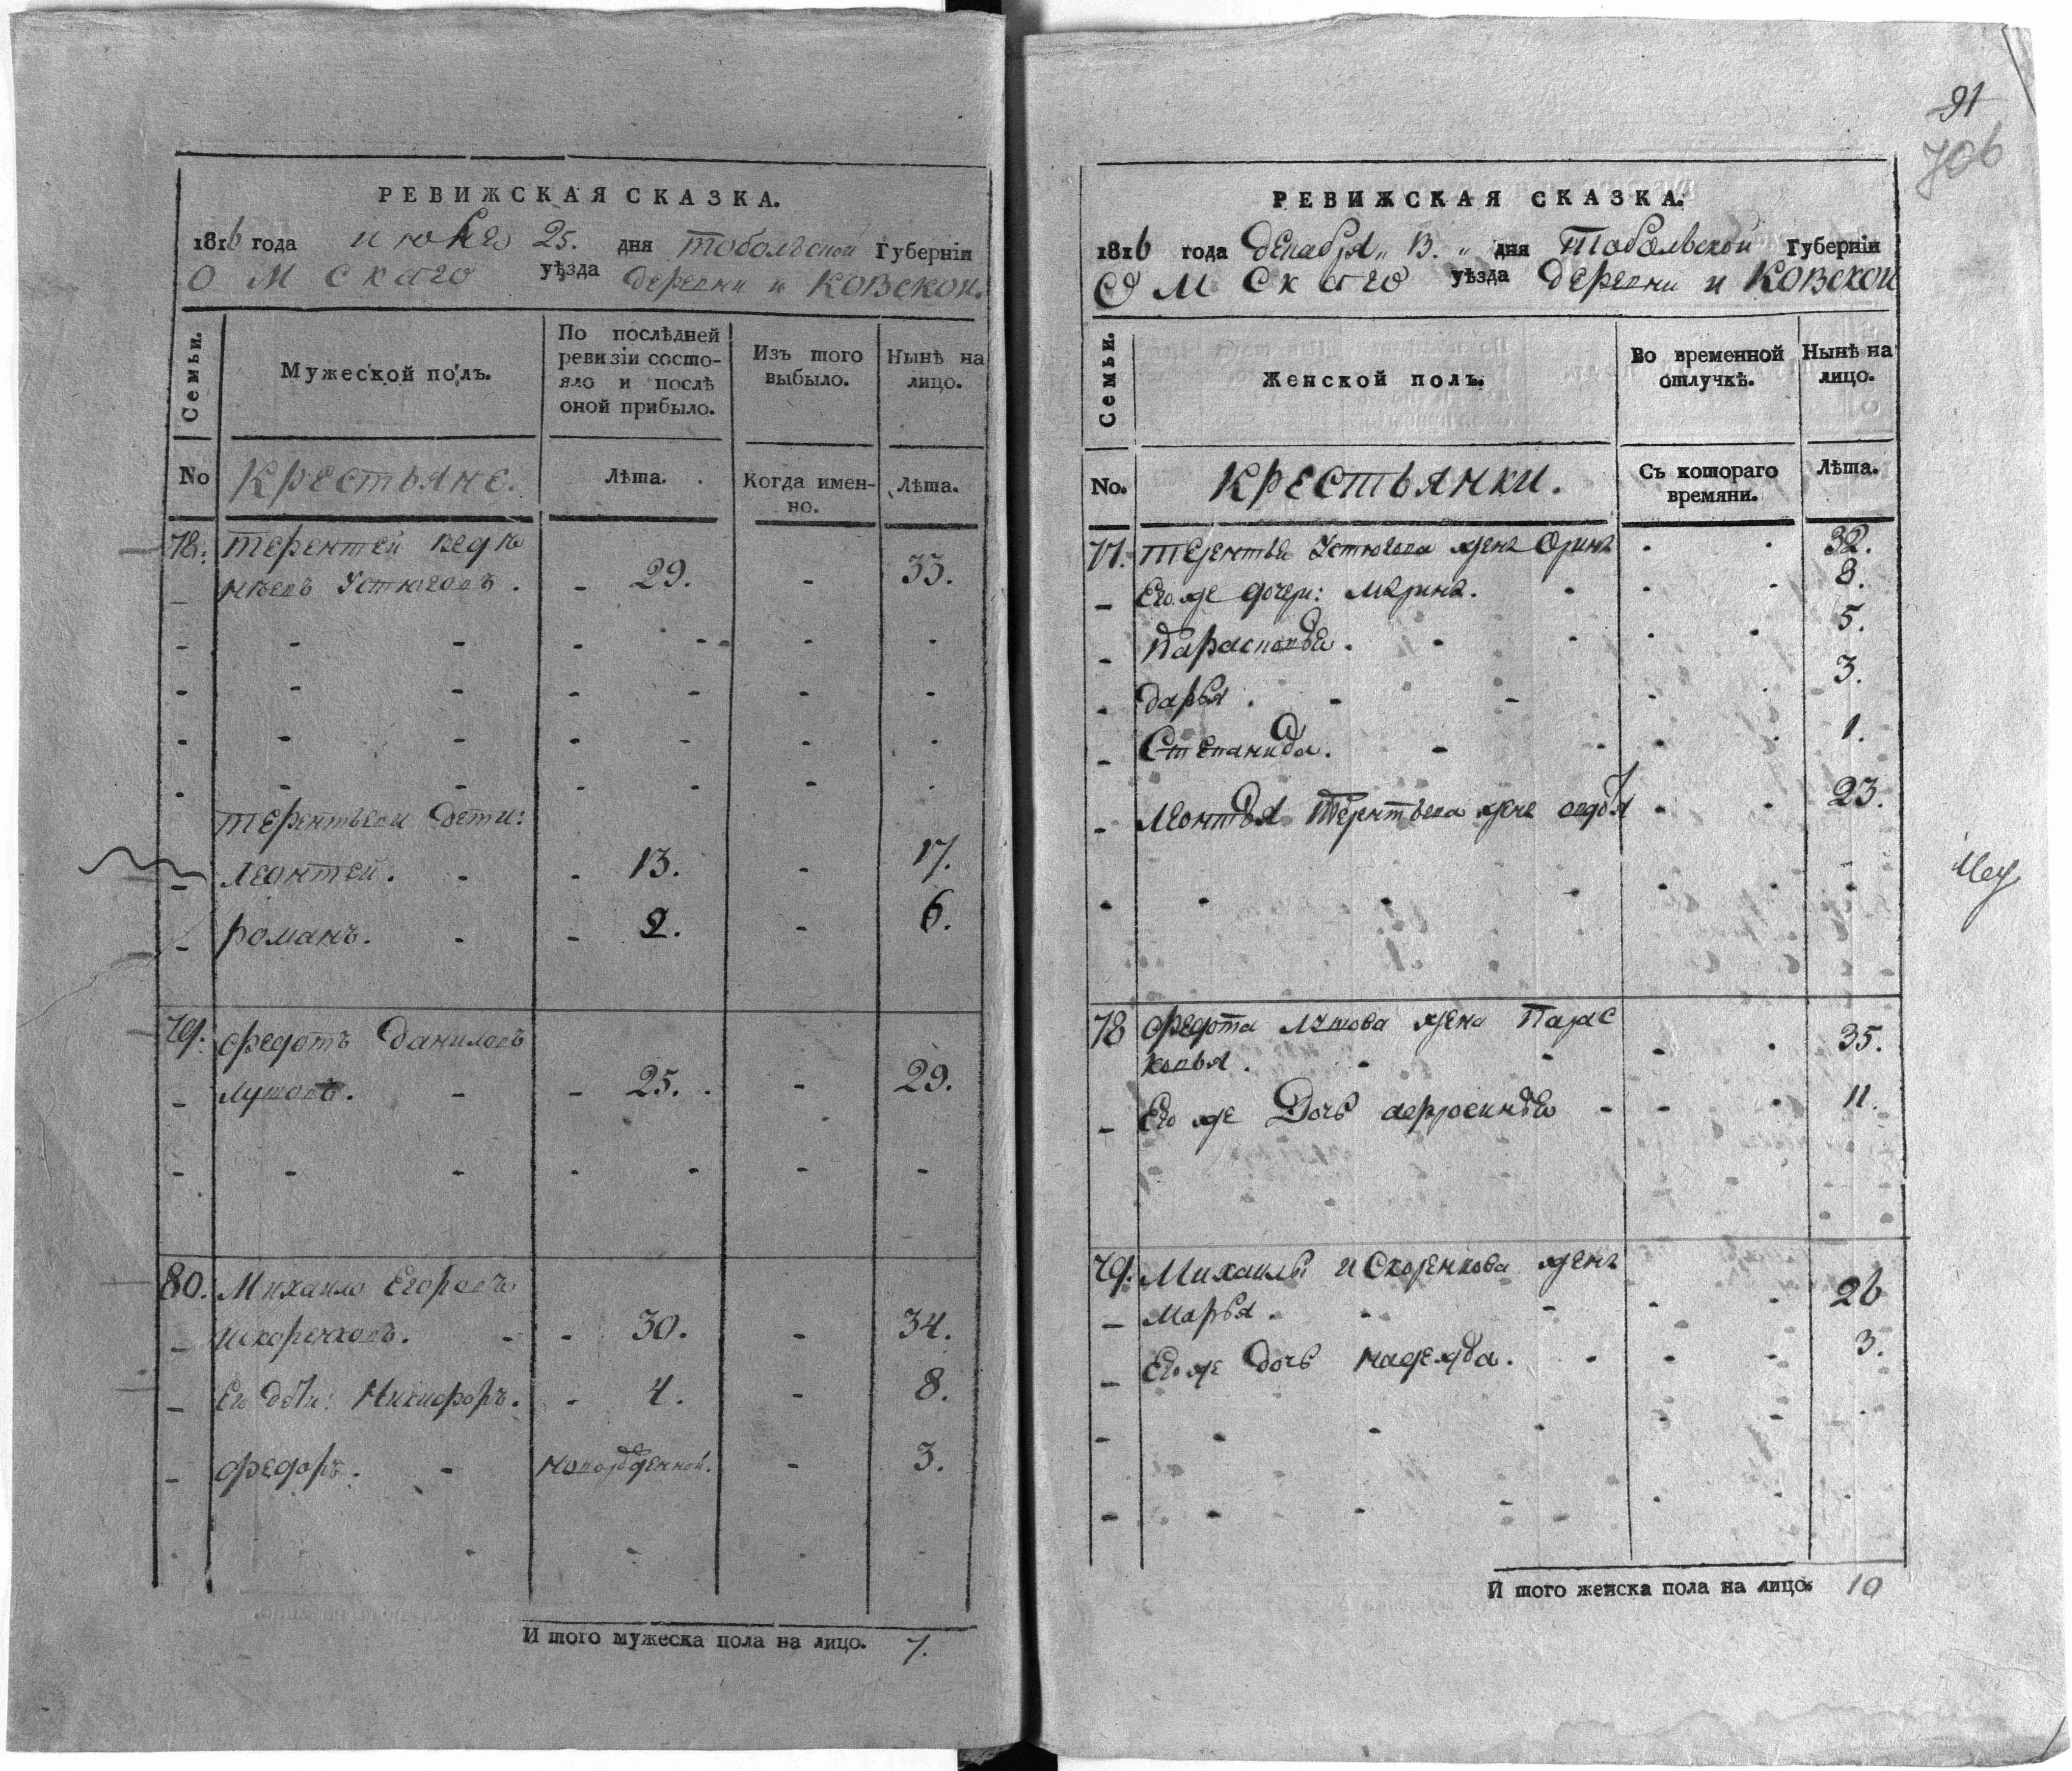 РЕВИЖСКАЯ СКАЗКА.
1816 года июня 25. дня тобольской Губернїи
Омскаго уѣзда деревни иковской.
Семьи.
Мужеской полъ.
По послѣдней ревизїи состо-яло и послѣ оной прибыло.
Изъ того выбыло.
Нынѣ на лицо.
No
Крестьяне.
Лѣта.
Когда имен-но.
Лѣта.
78.
терентей
Устюговъ. - 29. - 33.
терентьевы дети:
леонтей. - - 13. - 17.
романъ. - - 2. - 6.
79. федотъ Даниловъ
лутовъ. - - 25. - 29.
80. Михаило Егоровъ
Искоренковъ. - - 30. - 34.
Ево дети: Никифоръ. - 4. - 8.
федоръ. - новорожденной. - 3.
И того мужеска пола на лицо. 7.
91
706
РЕВИЖСКАЯ СКАЗКА.
1816 года декабря 13. дня Тобольской Губернїи
Омскаго уѣзда деревни иковской
Семьи.
Женской полъ.
Во временной отлучкѣ.
Нынѣ на лицо.
No.
Крестьянки.
Съ котораго времяни.
Лѣта.
77. терентья Устюгова жена Орина 32.
Его же дочери: Марина. 8.
Парасковья. 5.
дарья. 3.
Степанида. 1.
леонтья Терентьева жена 23.
78 федота лутова жена Парас
ковья. 35.
Ево же Дочь 11.
79. Михаилы Искоренкова жена
Марья. 26
Ево же дочь надежда. 3.
И того женска пола на лицо. 10